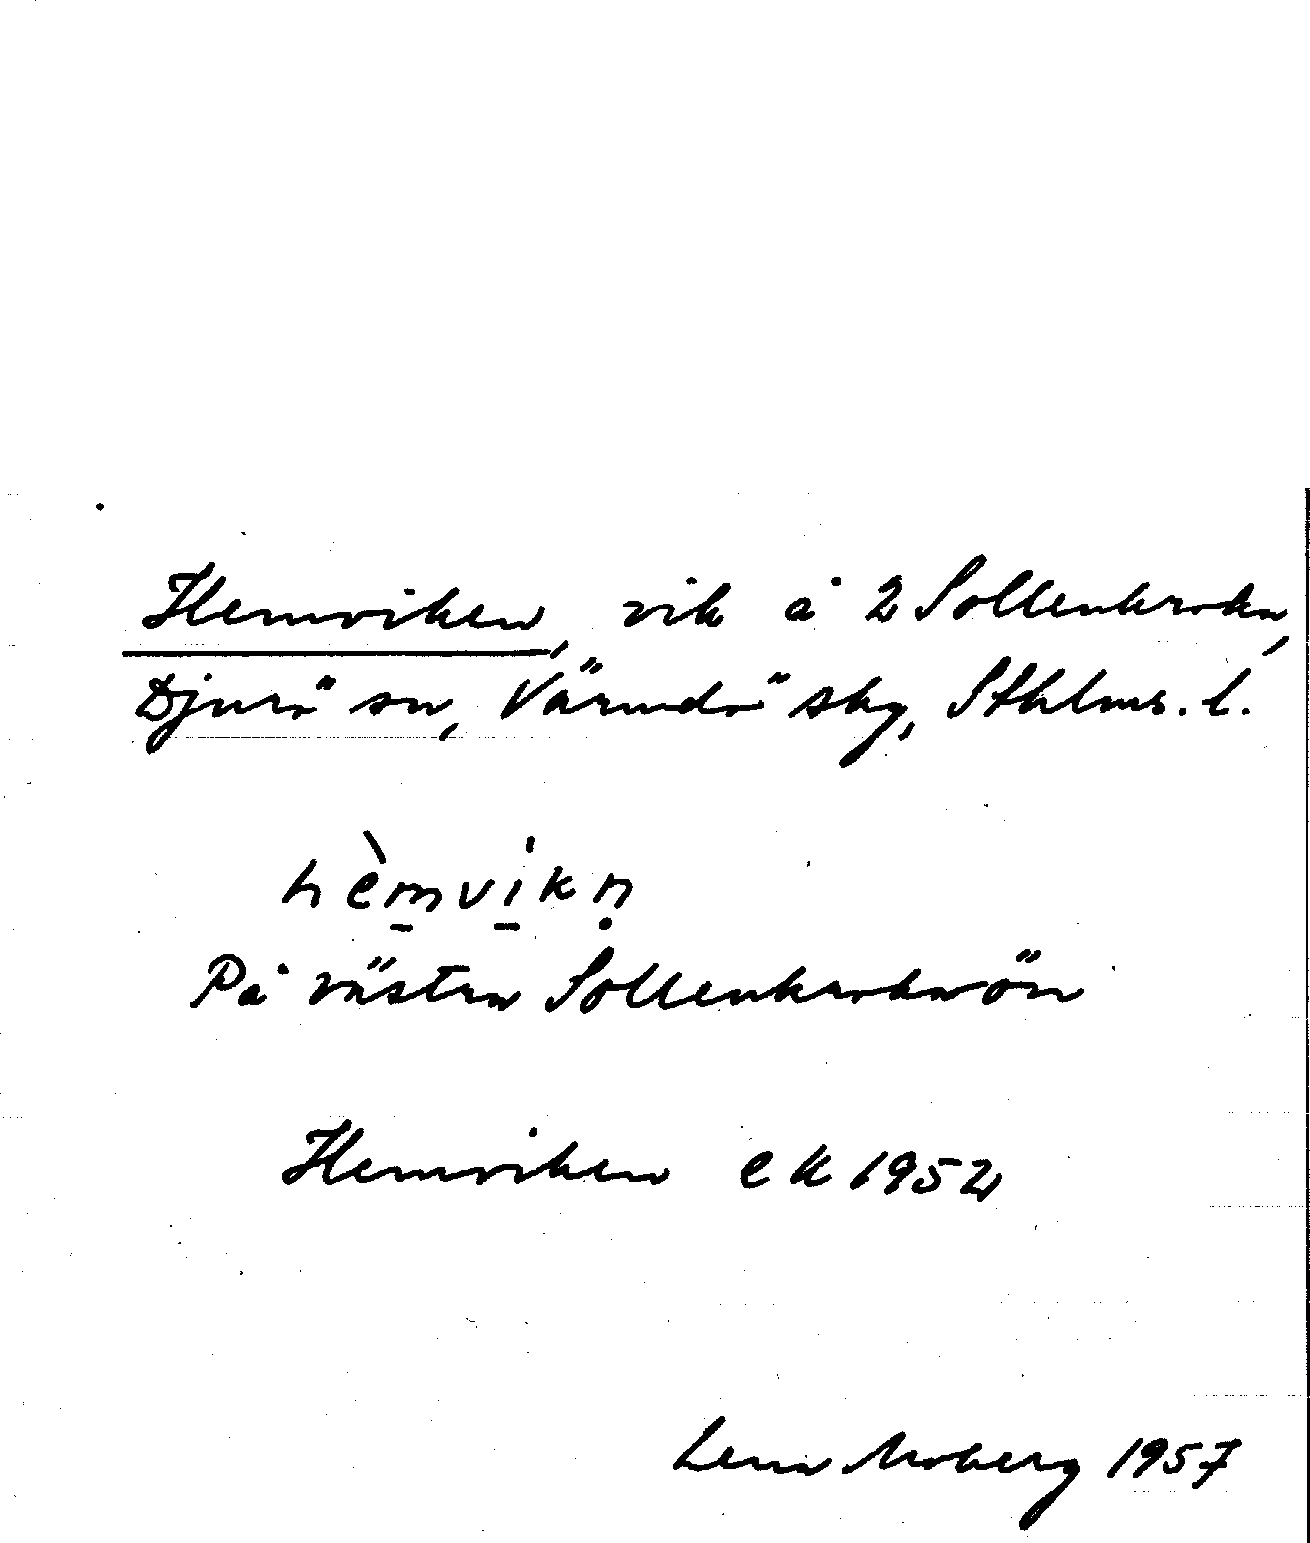 Hemviken, vik å 2 Sollenkroka,
Djurö sn, Värmdö skg, Sthlms. l.
hèm̱vi̱kṇ
På västra Sollenkrokaön
Hemviken ek 1952
Lena Moberg 1957